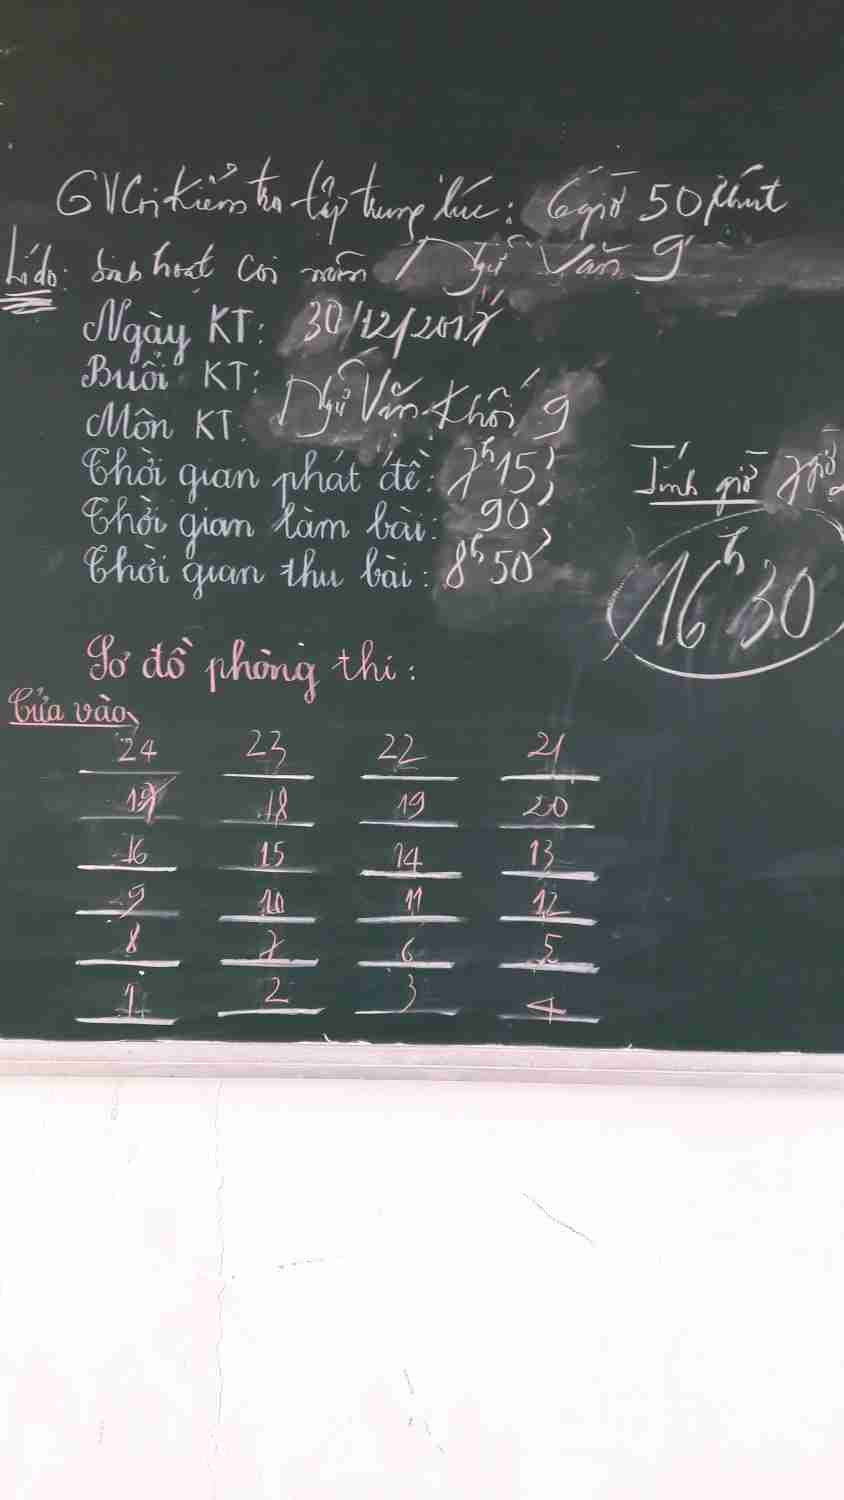 GV Coi kiểm tra tập trung lúc: 6 giờ 50 phút
Lí do: Sinh hoạt coi môn Ngữ Văn 9
Ngày KT: 30/12/2017
Buổi KT:
Môn KT: Ngữ Văn Khối 9
Thời gian phát đề: 7h15'
Thời gian làm bài: 90'
Thời gian thu bài: 8h50'
Tính giờ 7giờ
16h30
Sơ đồ phòng thi:
Cửa vào
24 23 22 21
17 18 19 20
16 15 14 13
9 10 11 12
8 7 6 5
1 2 3 4